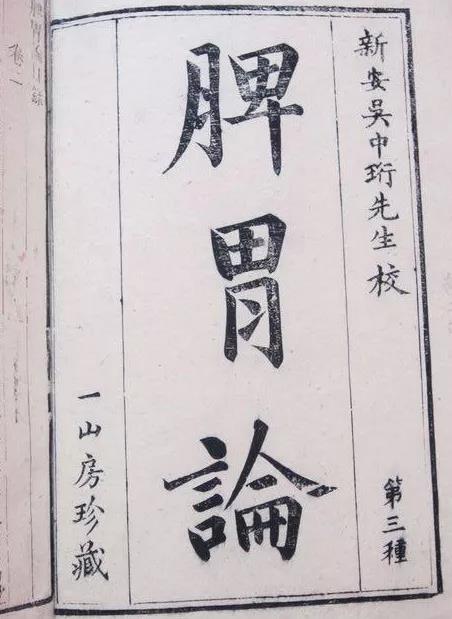 新安吳中珩先生校
第三種
脾胃論
一山房珍藏
卷一